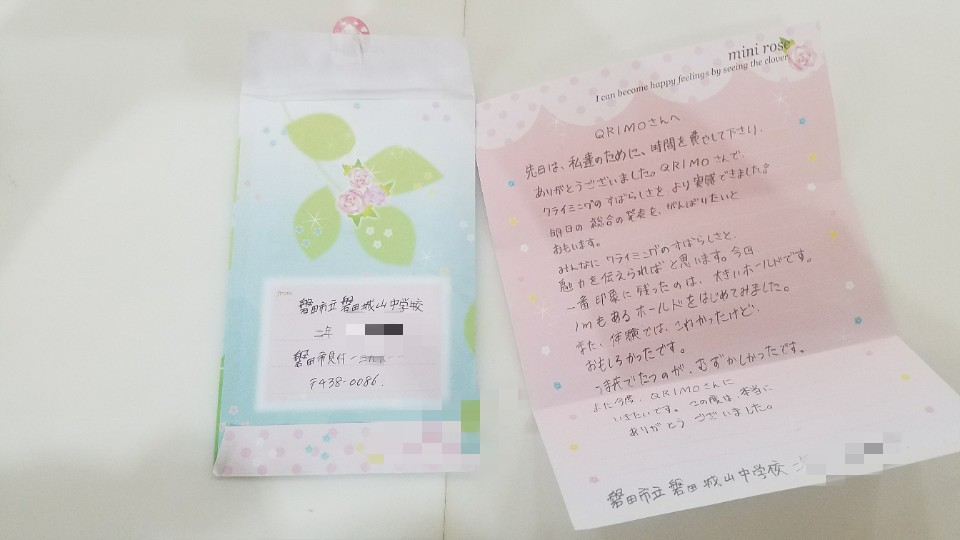 from
磐田市立磐田城山中学校
二年
磐田市見付
〒438-0086.
mini rose
I can become happy feelings by seeing the clover.
QRIMOさんへ
先日は、私達のために、時間を費やして下さり、
ありがとうございました。QRIMOさんで、
クライミングのすばらしさを より実感できました。
明日の総合の発表を、がんばりたいと
おもいます。
みんなに クライミングのすばらしさと、
魅力を伝えられればと思います。今回、
一番印象に残ったのは、大きいホールドです。
1mもあるホールドをはじめてみました。
また、体験では、こわかったけど、
おもしろかったです。
つま先でたつのが、むずかしかったです。
また今度、QRIMOさんに
いきたいです。この度は、本当に
ありがとう ございました。
磐田市立磐田城山中学校 二